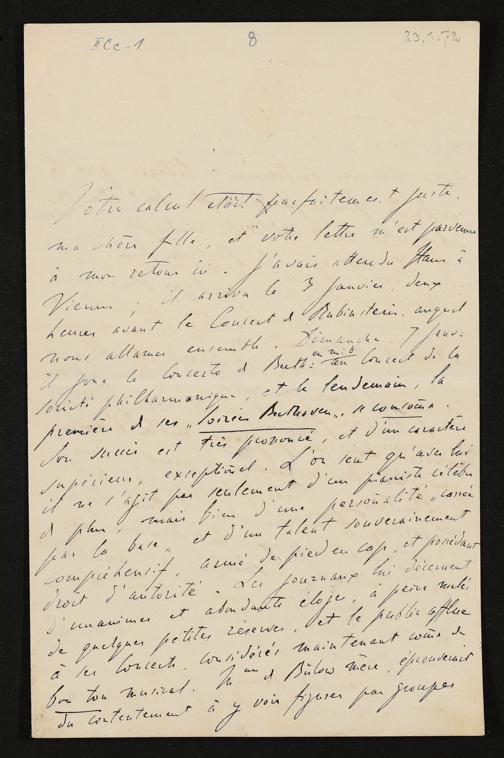 II Cc-1 8 23.1.72
Votre calcul était parfaitement juste,
ma chère fille, et votre lettre m'est parvenue
à mon retour ici. J'avais attendu Hans à
Vienne; il arriva le 3 Janvier, deux
heures avant le Concert d Rubinstein, auquel
nous allames ensemble. Dimanche, 7 Janv:
il joua le Concerto d Beeth: en mi b au Concert de la
société philharmonique, et le lendemain, la
première d ses "Soirées Beethoven".
Son succès est très prononcé, et d'un caractère
supérieur, exceptionel. L'on sent qu'avec lui
il ne s'agit pas seulement d'un pianiste célèbre
d plus, mais bien d'une personalité "carrée
par la base" et d'un talent souverainement
compréhensif, armé de pied en cap, et possédant
droit d'autorité. Les journaux lui décernent
d'unanimes et abondants éloges, à peine mêlés
de quelques petites réserves, et le public afflue
à ses Concerts, considérés maintenant come de
bon ton musical. Mme d Bülow mère, éprouverait
du contentement à y voir figurer par groupes